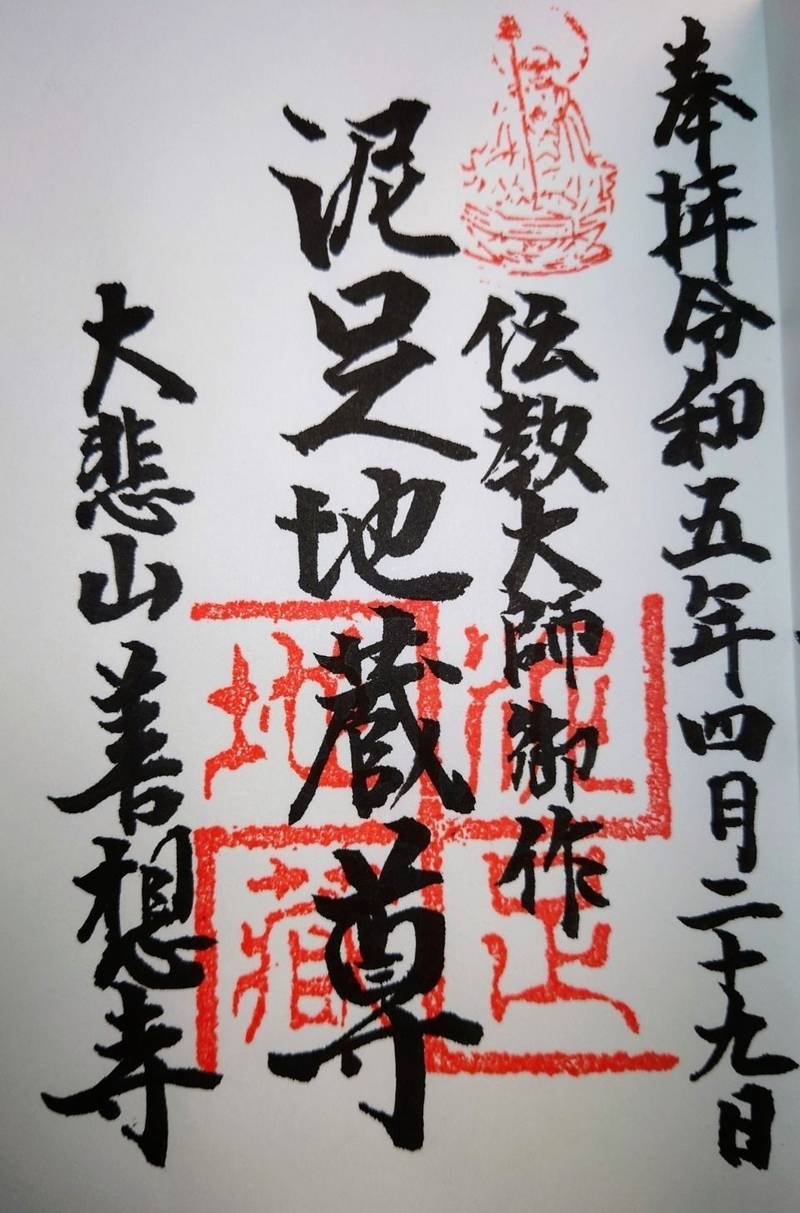 奉拝令和五年四月二十九日
伝教大師御作
泥足地蔵尊
大悲山善想寺
泥足
地藏